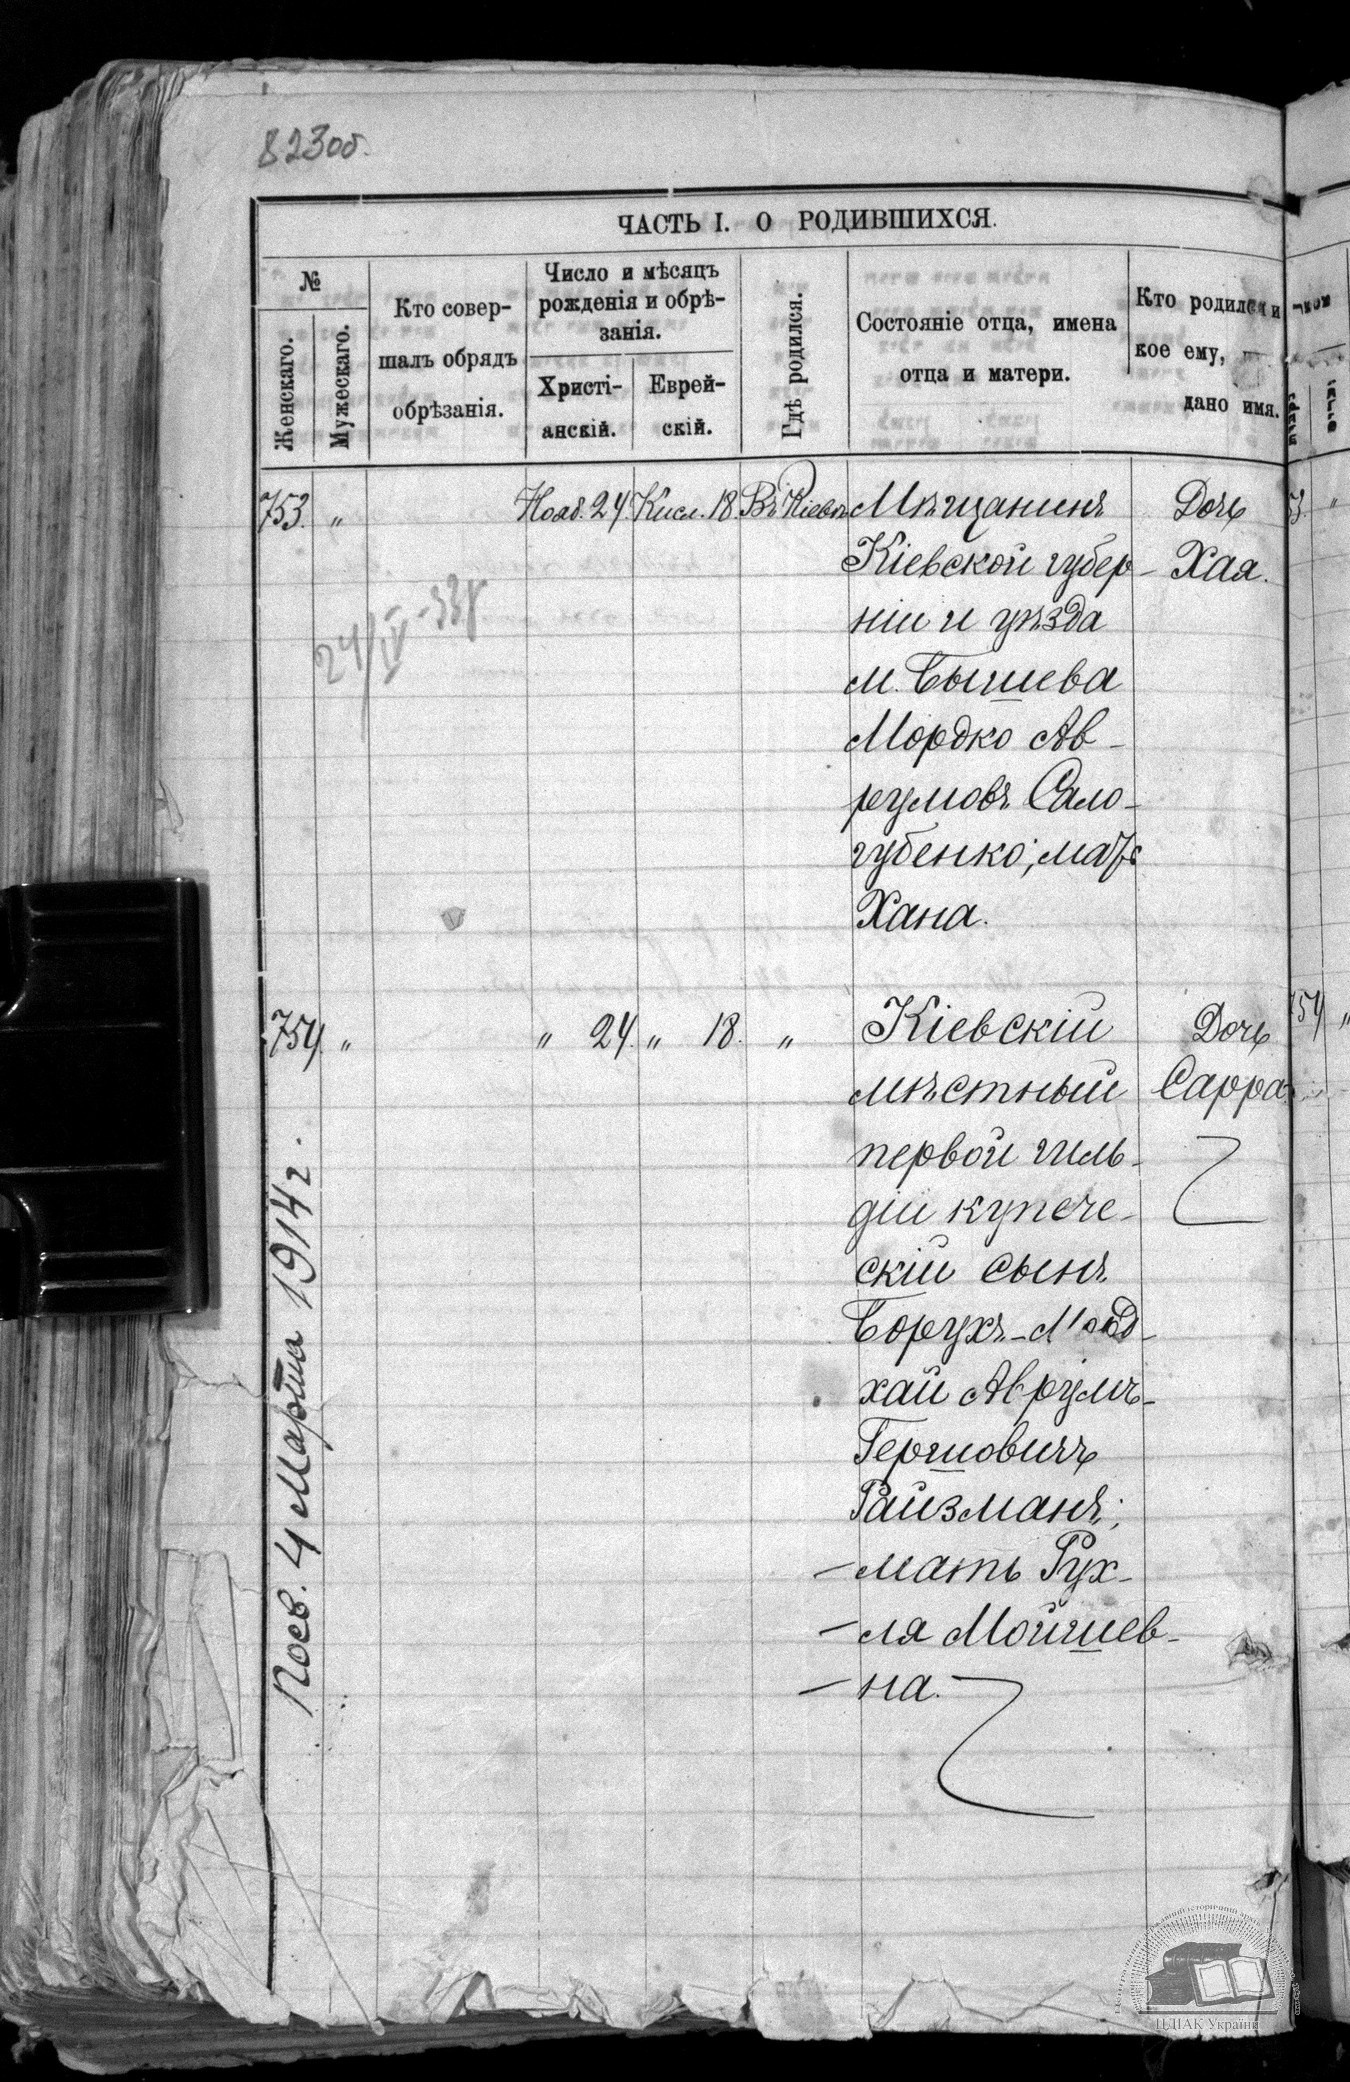 823об.
ЧАСТЬ I. О РОДИВШИХСЯ.
№
Женскаго.
Мужескаго.
Кто совер-
шалъ обрядъ
обрѣзанія.
Число и мѣсяцъ
рожденія и обрѣ-
занія.
Христі-
анскій.
Еврей-
скій.
Гдѣ родился.
Состояніе отца, имена
отца и матери.
Кто родился и
кое ему,
дано имя.
753. " Нояб. 24. Кисл. 18. Въ Кіевѣ Мѣщанинъ Дочь
Кіевской губер- Хая.
ніи и уѣзда
м. Бышева
Мордко Ав-
румовъ Сало-
губенко; мать
Хана.
24/IV-33г
754. " " 24. " 18. " Кіевскій Дочь
мѣстный Сарра
первой гиль-
діи купече-
скій сынъ
Борухъ-Морд-
хай Аврумъ-
Гершовичъ
Райзманъ;
мать Рух-
ля Мойшев-
на.
Пов. 4 Марта 1914 г.
754 "
ЦДІАК України